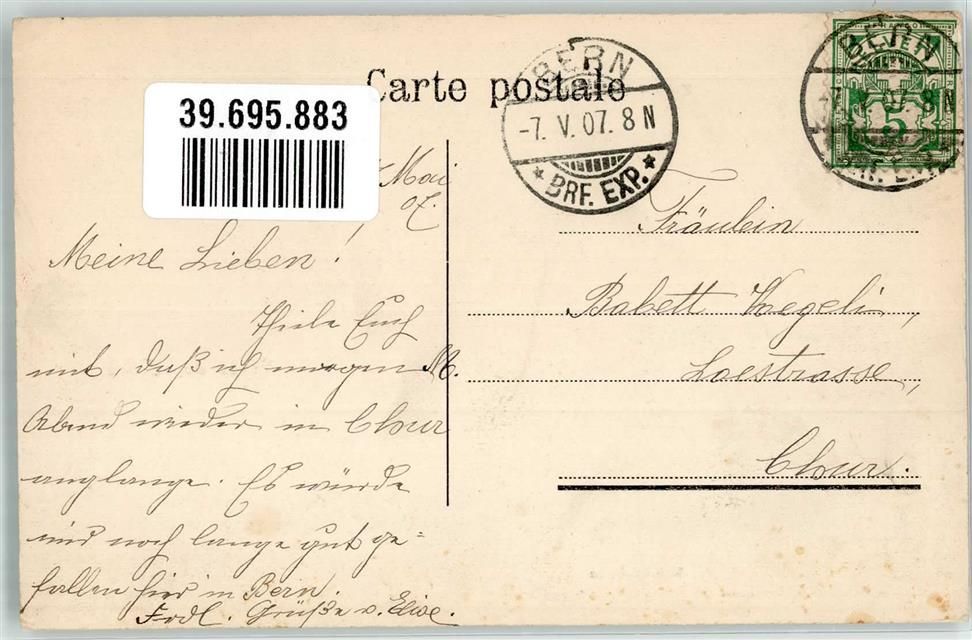 Carte postale
39.695.883
BERN
-7. V. 07. 8 N
BRF. EXP.
BERN
8 N
HELVETIA
FRANCO
5
Mai
07.
Meine Lieben!
Theile Euch
mit, daß ich morgen M.
Abend wieder in Chur
anglange. Es würde
mir noch lange gut ge=
fallen hier in Bern.
Frdl. Grüße v. Elise.
Fräulein
Babett Wegeli,
Loestrasse,
Chur.